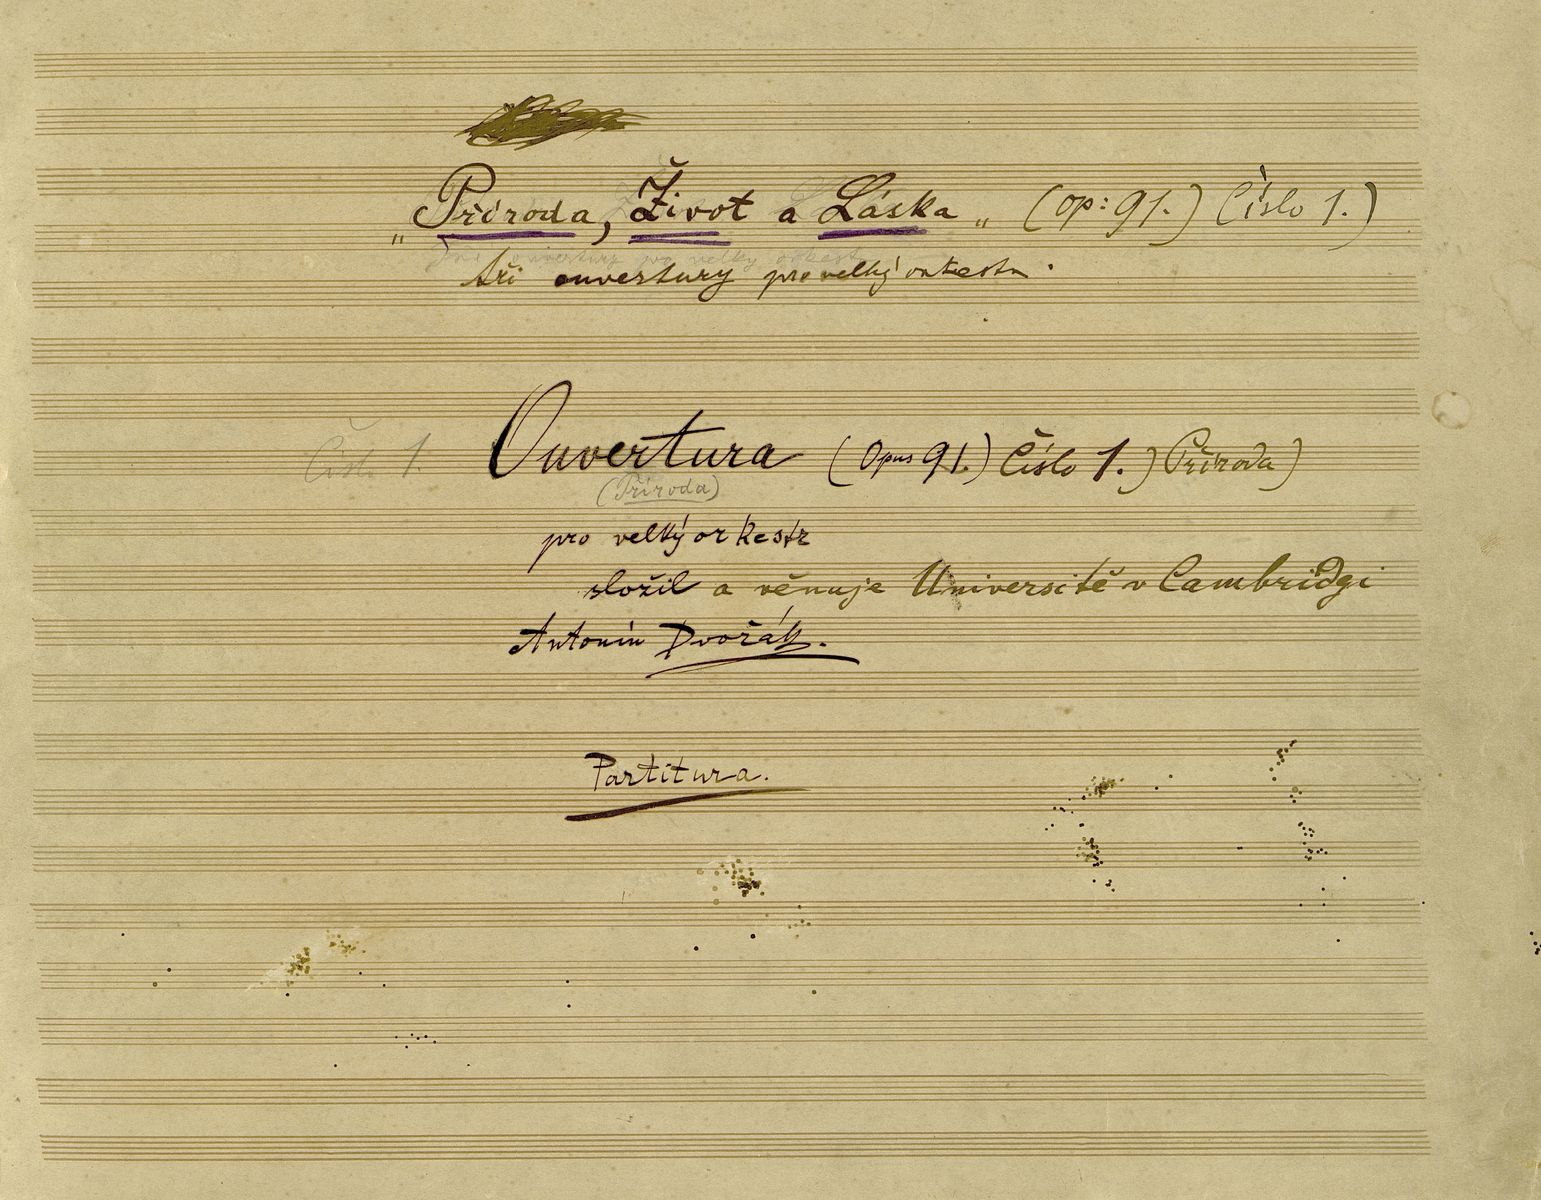 „Příroda, Život a Láska„ (op: 91.) Číslo 1.)
tři ouvertury pro velký orkestr.
Číslo 1. Ouvertura (Opus 91.) Číslo 1.) Příroda)
(Příroda)
pro velký orkestr
složil a věnuje Universitě v Cambridgi
Antonín Dvořák.
Partitura.